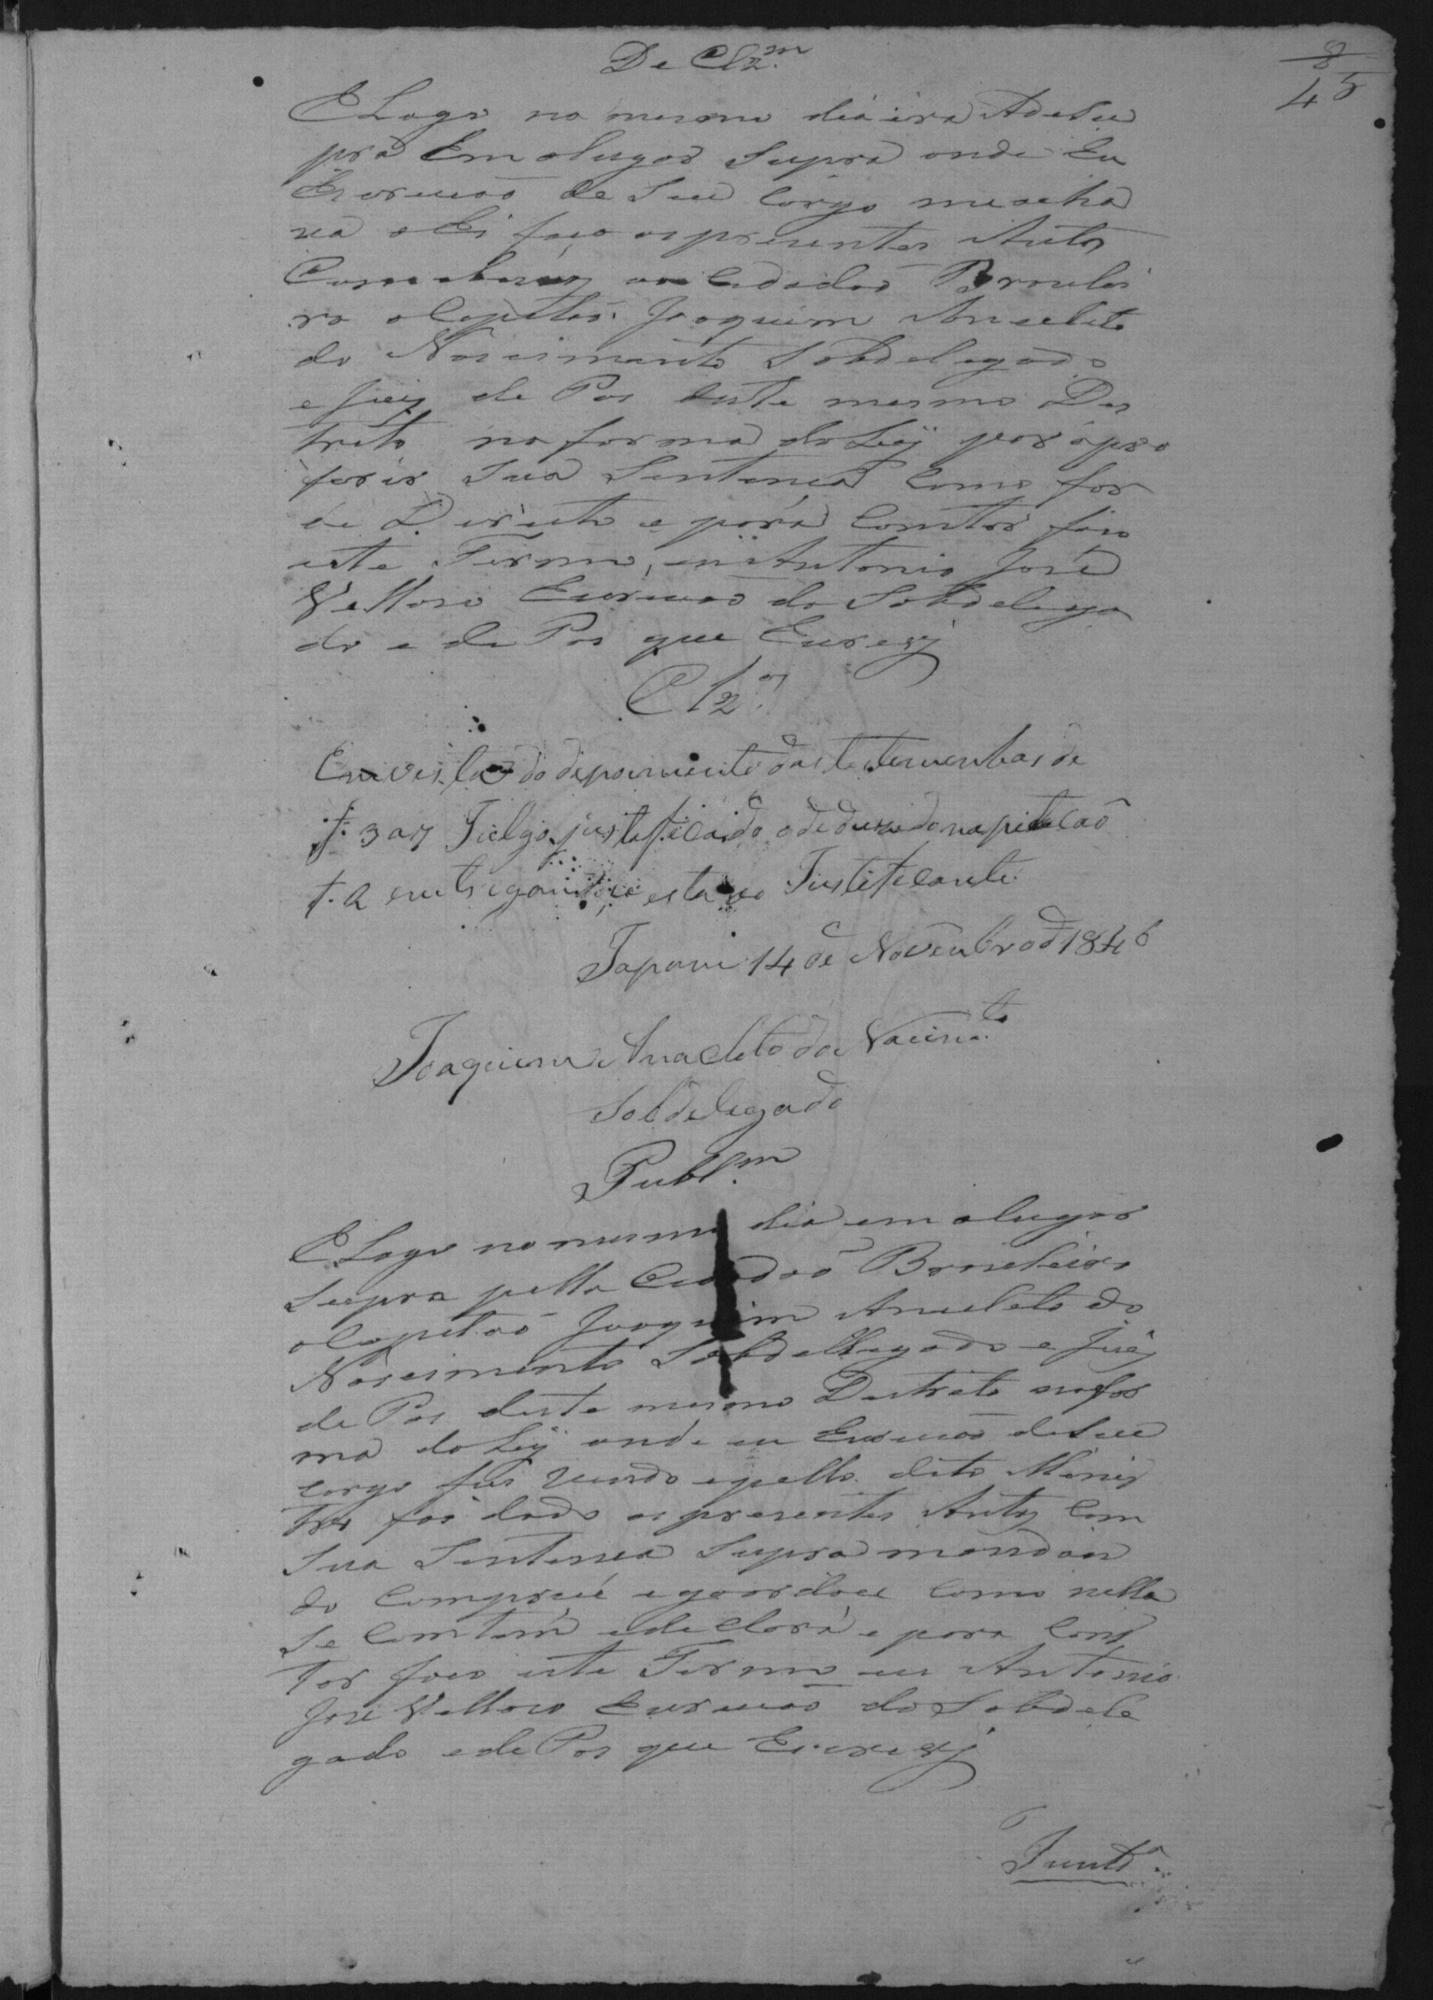 8
45
De Clz.m
E Logo no mesmo dia era Ade Su
pra Em olugar Supra onde Eu
Escrivaõ de Seu Cargo me acha
va e Ei faço os presentes Autos
Comcluzos ao Cidadaõ Brazilei
ro o Capitaõ Joaquim Anacleto
do Nascimento Sobdelegado
e Juis de Pas deste mesmo Des
treto na forma da Leÿ para o pro
ferir Sua Sentença Como for
de Direito e para Comstar faso
este Termo, eu Antonio José
Vellozo Escrivaõ do Sobdelega
do e de Pas que Escrevÿ
Clz.os
Em vista do depoimento das testemunhas de
f. 3 a 7 Julgo justeficado o deduzido na petecaõ
f. 2 entregandoce esta ao Justeficante
14 de Novembro de 1846
Joaquim Anacleto do Nacim.to
Sobdelegado
Publ.m
E Logo no mesmo dia em olugar
Supra pello Cidadaõ Brazileiro
o Capitaõ Joaquim Anacleto do
Nascimento Sobdellegado e Juis
de Pas deste mesmo Destreto na for
ma da Leÿ onde eu Escrivaõ de Seu
cargo fui vindo e pello dito Menis
tro foi dado os presentes Autos Com
Sua Sentensa Supra mandan
do Comprice e goardace Como nella
Se Comtem e declara e para Cons
tar faço este Termo eu Antonio
José Vellozo Escrivaõ do Sobdele
gado e de Pas que Escrevÿ
Junt.a